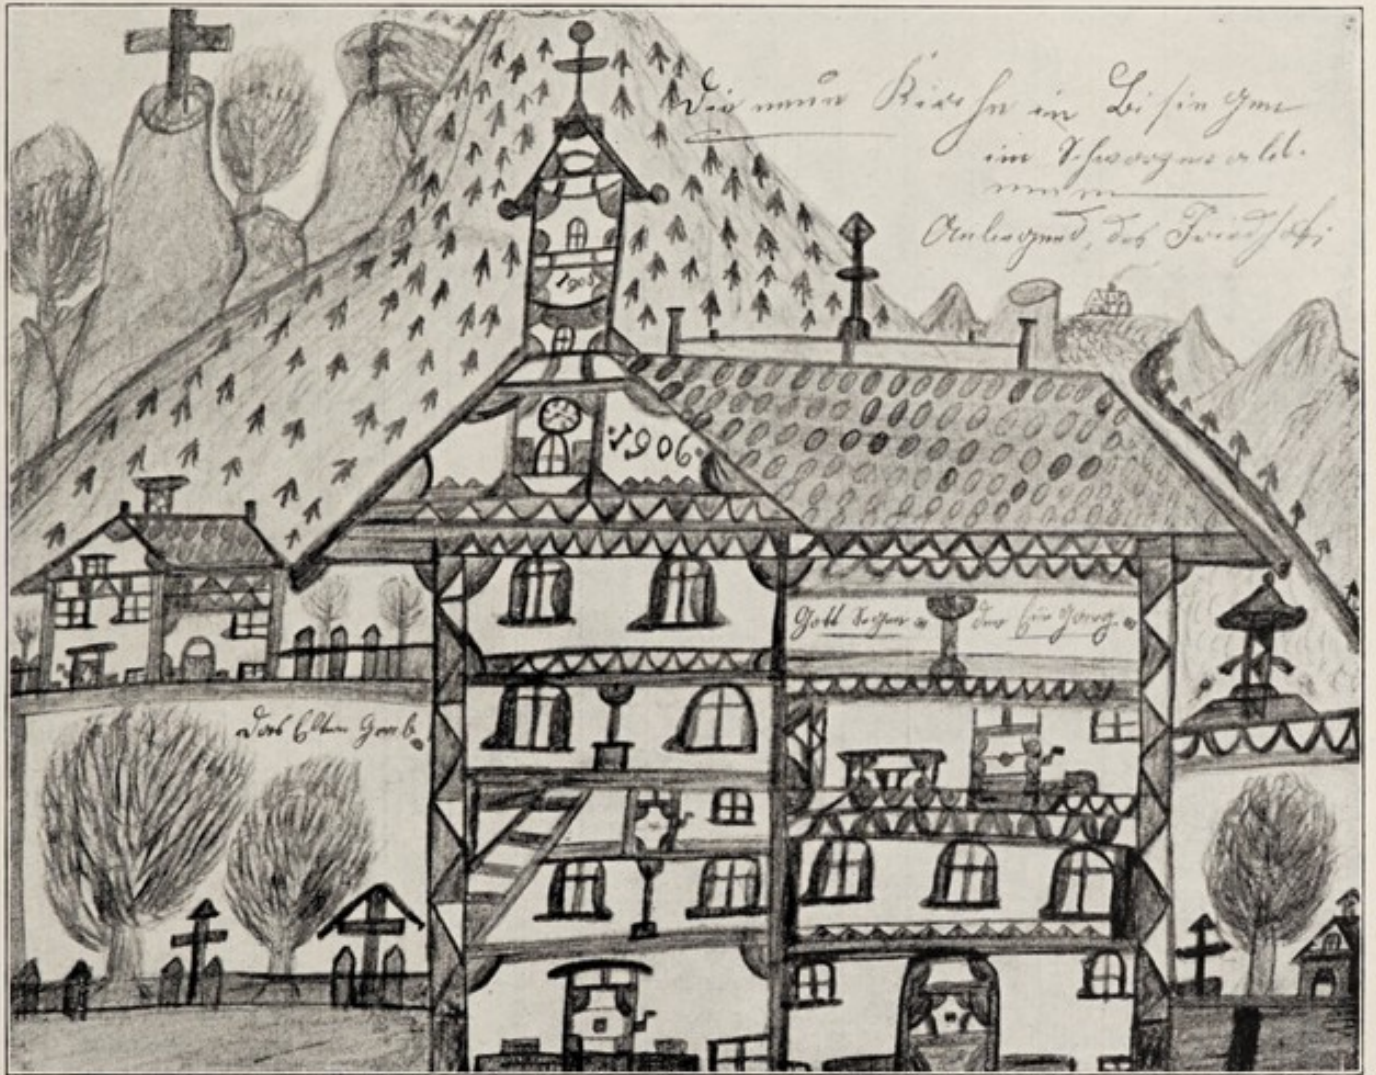 Die neue Kirche in Bisingen
im Schwarzwald.
Anliegend, des Friedhofs
1905
:1906.
Gott Segen der Eingang.
Das Eltern Grab.